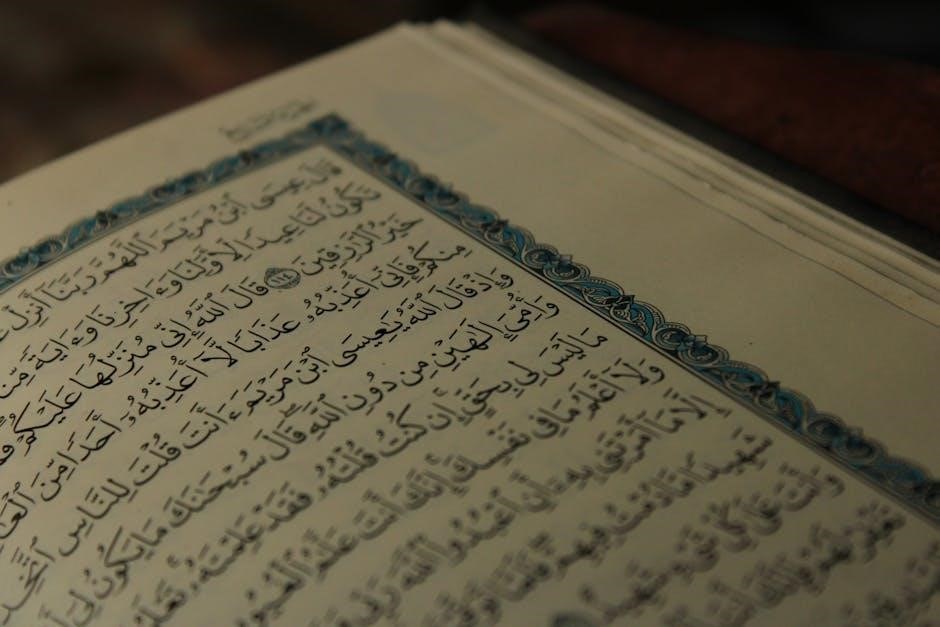 قَالَ عِيسَى ٱبْنُ مَرْيَمَ ٱللَّهُمَّ رَبَّنَآ أَنزِلْ
تَكُونُ لَنَا عِيدًا لِّأَوَّلِنَا وَءَاخِرِنَا وَءَايَةً مِّن
خَيْرُ ٱلرَّٰزِقِينَ ١١٤ قَالَ ٱللَّهُ إِنِّي مُنَزِّلُهَا عَلَيْكُمْ
مِنكُمْ فَإِنِّيٓ أُعَذِّبُهُۥ عَذَابًا لَّآ أُعَذِّبُهُۥٓ أَحَدًا مِّنَ ٱلْعَٰ
وَإِذْ قَالَ ٱللَّهُ يَٰعِيسَى ٱبْنَ مَرْيَمَ ءَأَنتَ قُلْتَ لِلنَّاسِ ٱتَّخِذُ
وَأُمِّيَ إِلَٰهَيْنِ مِن دُونِ ٱللَّهِ قَالَ سُبْحَٰنَكَ مَا يَكُونُ لِيٓ أَ
مَا لَيْسَ لِي بِحَقٍّ إِن كُنتُ قُلْتُهُۥ فَقَدْ عَلِمْتَهُۥ تَعْلَ
وَلَآ أَعْلَمُ مَا فِي نَفْسِكَ إِنَّكَ أَنتَ عَلَّٰمُ ٱلْغُيُو
إِلَّا مَآ أَمَرْتَنِي بِهِۦٓ أَنِ ٱعْبُدُوا۟ ٱللَّهَ رَبِّي
شَهِيدًا مَّا دُمْتُ فِيهِمْ فَلَمَّا تَوَفَّ
وَأَنتَ عَلَىٰ كُلِّ شَيْءٍ شَهِيدٌ
تَغْفِرْ لَهُمْ فَإِنَّكَ أَنتَ